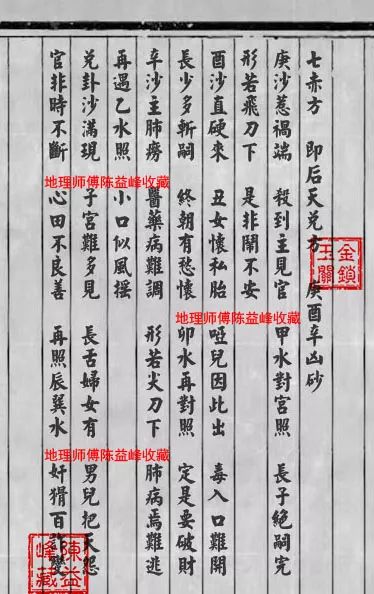 七赤方 即后天兌方 庚酉辛凶砂
庚沙惹禍端 殺到主見官 甲水對宮照 長子絕嗣完
形若飛刀下 是非鬧不安
酉沙直硬來 丑女懷私胎 啞兒因此出 毒入口難開
長少多斬嗣 終朝有愁懷 卯水再對照 定是要破財
辛沙主肺癆 醫藥病難調 形若火刀下 肺病焉難逃
再遇乙水照 小口似風搖
兌卦沙滿現 子宮難多見 長舌婦女有 男兒把天怨
官非時不斷 心田不良善 再照辰巽水 奸猾百變
金鎖玉關
地理师傅陈益峰收藏
地理师傅陈益峰收藏
地理师傅陈益峰收藏
陳益峰藏